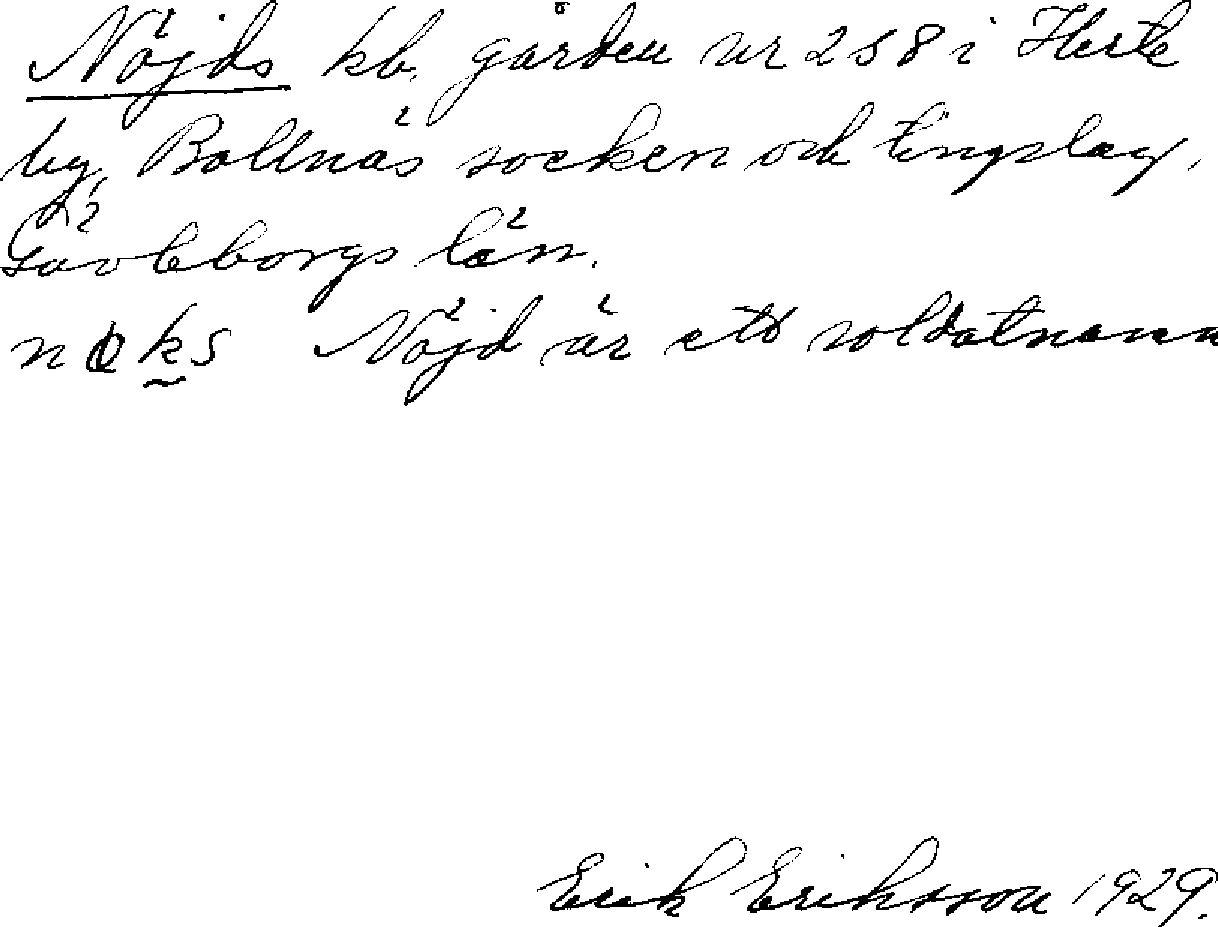 Nöjds kb. gården nr 258 i Herte
by, Bollnäs socken och tingslag,
Gävleborgs län.
Nöjd är ett soldatnamn
Erik Eriksson 1929.